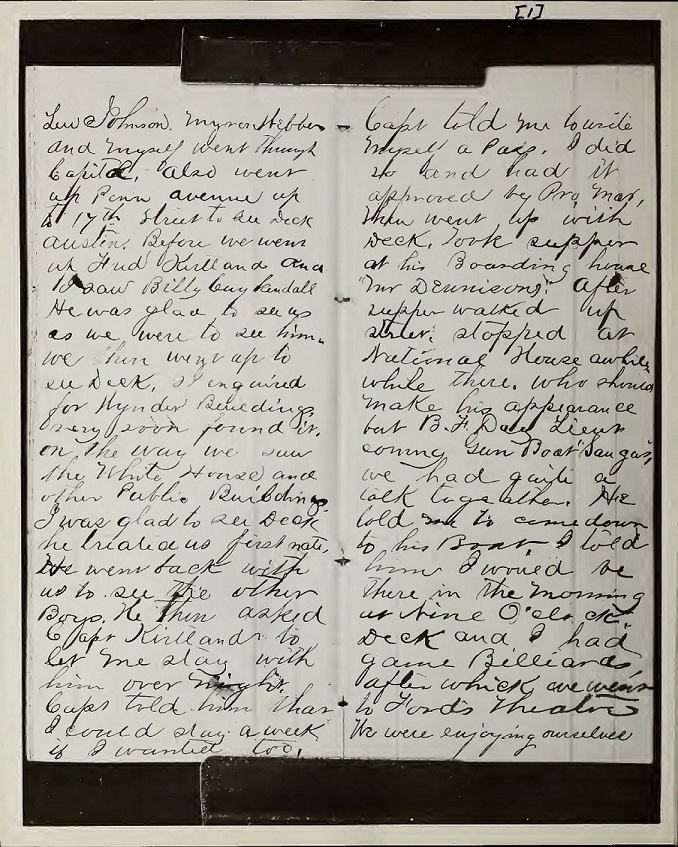 [1]
Lew Johnson. Myron Webber
and myself went through
Capitol, also went
up Penn avenue up
to 17th Street to see Deck
Austin. Before we went
up Fred Kirtland and
I saw Billy Cuykendall
He was glad to see us
as we were to see him.
we then went up to
see Deck, I enquired
for Wynder Building,
very soon found it.
on the way we saw
the White House and
other Public Buildings
I was glad to see Deck
he treated us first rate,
He went back with
us to see the other
Boys. He then asked
Capt Kirtland to
let me stay with
him over night.
Capt told him that
I could stay a week
if I wanted too,
Capt told me to write
myself a Pass. I did
so and had it
approved by Pro Mar,
then went up with
Deck. Took supper
at his Boarding house
"Mr Dennisons". after
supper walked up
street; stopped at
National House awhile,
while there. who should
make his appearance
but B. F. Day Lieut
coming Gun Boat "Saugus",
we had quite a
talk together. He
told me to come down
to his Boat, I told
him I would be
there in the morning
at Nine O'clock
Deck and I had
game Billiards
after which we went
to Fords Theatre
We were enjoying ourselves